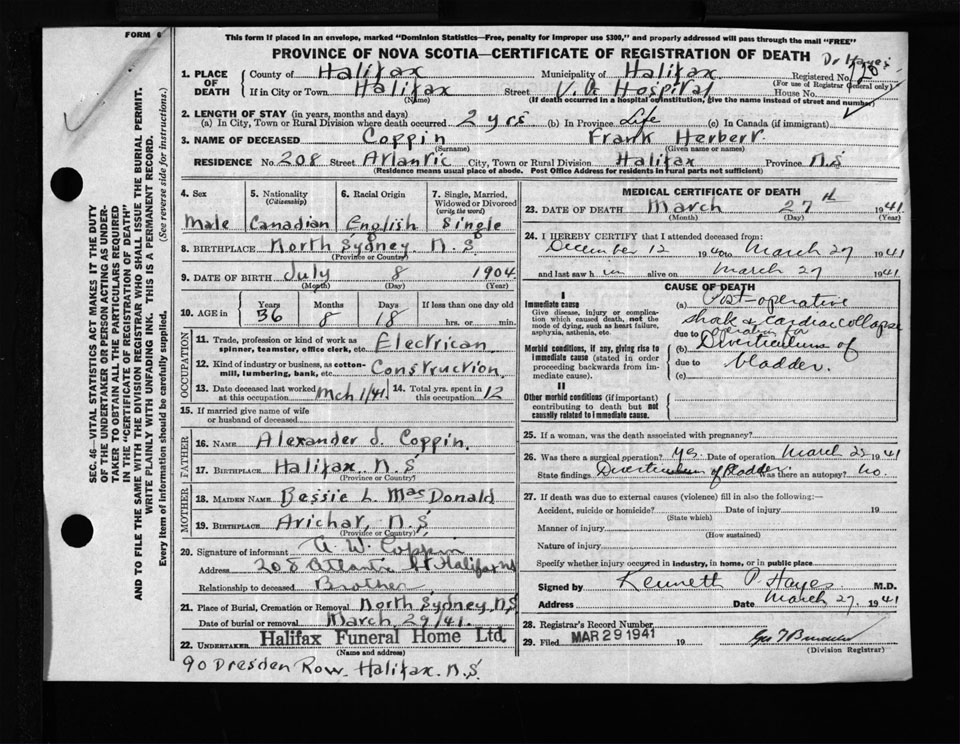 FORM 6
This form if placed in an envelope, marked "Dominion Statistics—Free, penalty for improper use $300," and properly addressed will pass through the mail "FREE"
PROVINCE OF NOVA SCOTIA—CERTIFICATE OF REGISTRATION OF DEATH
Dr Hayes
1. PLACE OF DEATH
County of Halifax Municipality of Halifax Registered No.
(For use of Registrar General only)
If in City or Town Halifax Street V.G. Hospital House No.
(Name) (If death occurred in a hospital or institution, give the name instead of street and number)
2. LENGTH OF STAY (in years, months and days)
(a) In City, Town or Rural Division where death occurred 2 yrs (b) In Province Life (c) In Canada (if immigrant)
3. NAME OF DECEASED Coppin Frank Herbert
(Surname) (Given name or names)
RESIDENCE No. 208 Street Atlantic City, Town or Rural Division Halifax Province N.S
(Residence means usual place of abode. Post Office Address for residents in rural parts not sufficient)
4. Sex 5. Nationality (Citizenship) 6. Racial Origin 7. Single, Married, Widowed or Divorced (write the word)
Male Canadian English Single
8. BIRTHPLACE North Sydney N.S
(Province or Country)
9. DATE OF BIRTH July 8 1904
(Month) (Day) (Year)
10. AGE in Years Months Days If less than one day old
36 8 18 hrs. or min.
OCCUPATION
11. Trade, profession or kind of work as spinner, teamster, office clerk, etc. Electrican
12. Kind of industry or business, as cotton-mill, lumbering, bank, etc. Construction.
13. Date deceased last worked at this occupation Mch 1/41 14. Total yrs. spent in this occupation 12
15. If married give name of wife or husband of deceased
FATHER
16. NAME Alexander J. Coppin.
17. BIRTHPLACE Halifax N.S
(Province or Country)
MOTHER
18. MAIDEN NAME Bessie L. MacDonald
19. BIRTHPLACE Arichat, N.S
(Province or Country)
20. Signature of informant A. W. Coppin
Address 208 Atlantic St Halifax NS
Relationship to deceased Brother
21. Place of Burial, Cremation or Removal North Sydney, N.S
Date of burial or removal March 29/41.
22. UNDERTAKER Halifax Funeral Home Ltd.
(Name and address)
90 Dresden Row. Halifax. N.S.
MEDICAL CERTIFICATE OF DEATH
23. DATE OF DEATH March 27th 1941
(Month) (Day)
24. I HEREBY CERTIFY that I attended deceased from:
December 12 1940 to March 27 1941
and last saw h im alive on March 27 1941
CAUSE OF DEATH
I
Immediate cause
Give disease, injury or complication which caused death, not the mode of dying, such as heart failure, asphyxia, asthenia, etc.
(a) Post-operative
shock & cardiac collapse
due to Operation for
Morbid conditions, if any, giving rise to immediate cause (stated in order proceeding backwards from immediate cause).
(b) Diverticulum of
due to bladder.
(c)
II
Other morbid conditions (if important) contributing to death but not causally related to immediate cause.
25. If a woman, was the death associated with pregnancy?
26. Was there a surgical operation? yes. Date of operation March 25 1941
State findings Diverticulum of Bladder Was there an autopsy? No
27. If death was due to external causes (violence) fill in also the following:—
Accident, suicide or homicide? Date of injury 19
(State which)
Manner of injury
(How sustained)
Nature of injury
Specify whether injury occurred in industry, in home, or in public place
Signed by Kenneth P. Hayes M.D.
Address Date March 27. 1941
28. Registrar's Record Number
29. Filed MAR 29 1941 19
(Division Registrar)
SEC. 46—VITAL STATISTICS ACT MAKES IT THE DUTY
OF THE UNDERTAKER OR PERSON ACTING AS UNDER-
TAKER TO OBTAIN ALL THE PARTICULARS REQUIRED
IN THE "CERTIFICATE OF REGISTRATION OF DEATH"
AND TO FILE THE SAME WITH THE DIVISION REGISTRAR WHO SHALL ISSUE THE BURIAL PERMIT.
WRITE PLAINLY WITH UNFADING INK. THIS IS A PERMANENT RECORD.
Every item of information should be carefully supplied. (See reverse side for instructions.)